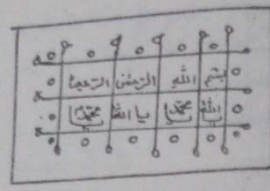 بسم الله الرحمن الرحيم
يا الله محمدا يا الله محمدا